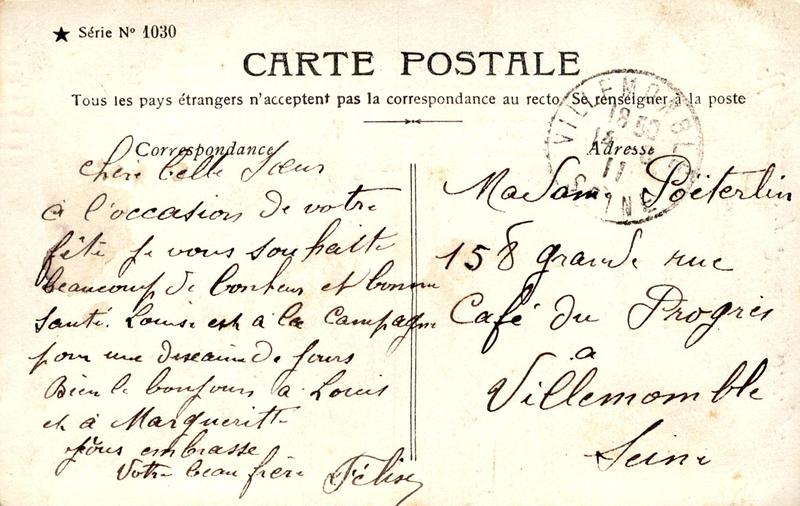 ★ Série Nº 1030
CARTE POSTALE
Tous les pays étrangers n'acceptent pas la correspondance au recto. Se renseigner à la poste
Correspondance
chère belle Sœur
à l'occasion de votre
fête je vous souhaitte
beaucoup de bonheur et bonne
Santé. Louise est à la campagne
pour une diseaine de jours
Bien le bonjour à Louis
et à Margueritte
vous embrasse
Votre beau frère Félix
Adresse
VILLEMOMBLE
18 50
11
SEINE
Madame Poëterlin
158 grande rue
Café du Progrès
à
Villemomble
Seine